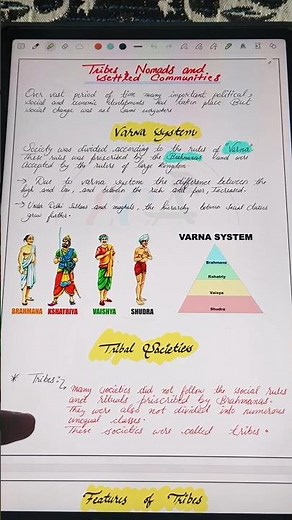 Tribes, Nomads and
Settled Communities
Over vast period of time many important political,
social and economic developments had taken place. But
social change was not same everywhere
Varna System
Society was divided according to the rules of Varna
These rules was prescribed by the Brahmanas and were
accepted by the rulers of large kingdom
→ Due to varna system the difference between the
high and low, and between the rich and poor, Increased.
→ Under Delhi Sultans and mughals, the hierarchy between social classes
grew further.
BRAHMANA KSHATRIYA VAISHYA SHUDRA
VARNA SYSTEM
Brahmana
Kshatriy
Vaisya
Shudra
Tribal Societies
* Tribes:
Many societies did not follow the social rules
and rituals priscribed by Brahmanas.
They were also not divided into numerous
unequal classes.
These societies were called tribes.
Features of Tribes